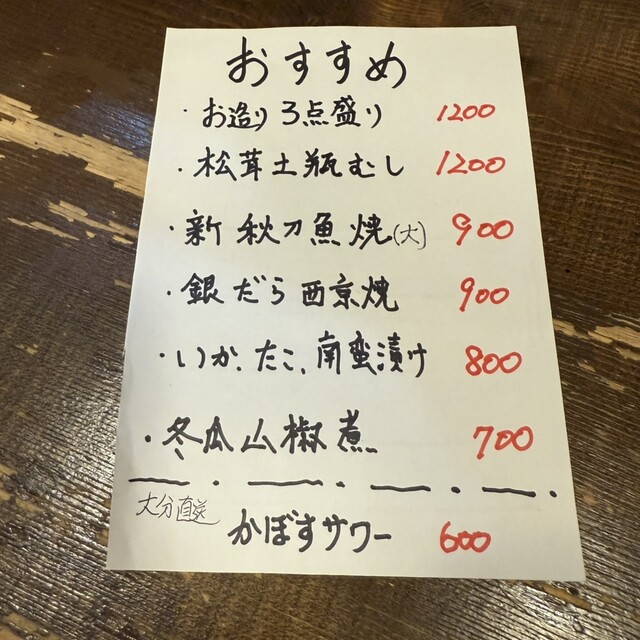 おすすめ
・お造り3点盛り 1200
・松茸土瓶むし 1200
・新秋刀魚焼(大) 900
・銀だら西京焼 900
・いか、たこ、南蛮漬け 800
・冬瓜山椒煮 700
大分直送
かぼすサワー 600